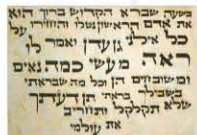 בשעה שברא הקדוש ברוך הוא
את אדם הראשון נטלו והחזירו על
כל אילני גן עדן ויאמר לו
ראה מעשי כמה נאים
ומשובחים הן וכל מה שבראתי
בשבילך בראתי תן דעתך
שלא תקלקל ותחריב
את עולמי